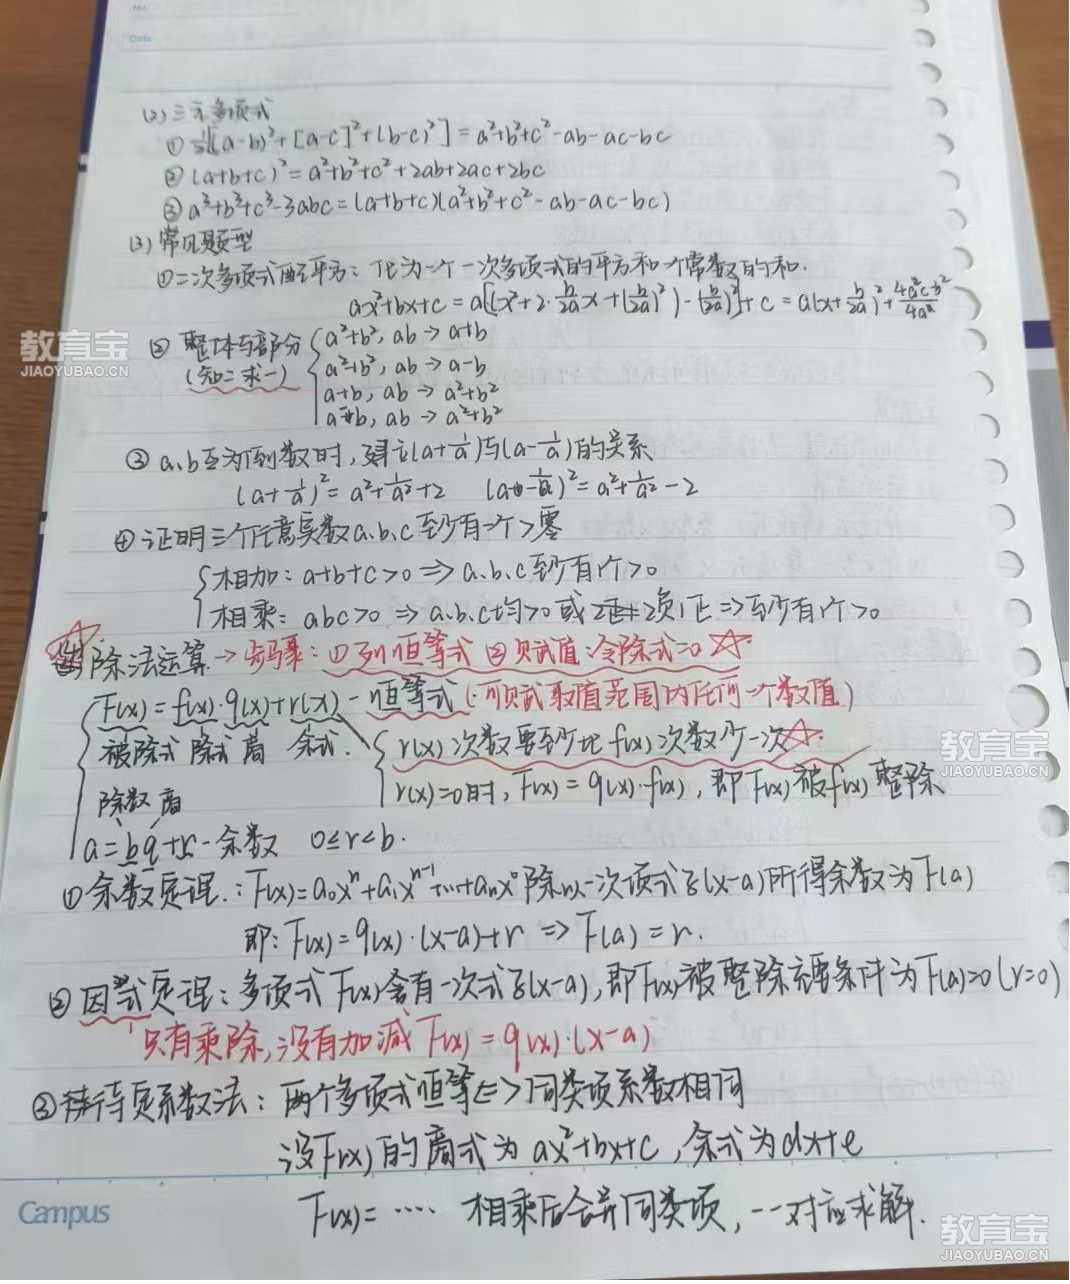 No.
Date
(2) 三元多项式
① ½[(a-b)²+[a-c]²+(b-c)²] = a²+b²+c²-ab-ac-bc
② (a+b+c)² = a²+b²+c²+2ab+2ac+2bc
③ a³+b³+c³-3abc = (a+b+c)(a²+b²+c²-ab-ac-bc)
(3) 常见题型
①二次多项式配平方: 化为一个一次多项式的平方和一个常数的和.
ax²+bx+c = a[(x²+2·b/2a x+(b/2a)²)-(b/2a)²]+c = a(x+b/2a)²+
② 整体与部分
(知二求一)
a²+b², ab → a+b
a²+b², ab → a-b
a+b, ab → a²+b²
a-b, ab → a²+b²
教育宝
JIAOYUBAO.CN
③ a、b互为倒数时, 建立(a+1/a)与(a-1/a)的关系
(a+1/a)² = a²+1/a²+2 (a-1/a)² = a²+1/a²-2
④ 证明三个任意实数a、b、c至少有一个>零
相加: a+b+c>0 ⇒ a、b、c至少有1个>0
相乘: abc>0 ⇒ a、b、c均>0 或 2负1正 ⇒ 至少有1个>0
除法运算 → 步骤: ①列恒等式 ②赋值:令除式=0 ☆
F(x) = f(x)·q(x)+r(x) - 恒等式 (可赋取值范围内任何一个数值)
被除式 除式 商 余式.
r(x)次数要至少比f(x)次数少一次☆
r(x)=0时, F(x) = q(x)·f(x), 即F(x)被f(x)整除
教育宝
JIAOYUBAO.CN
除数 商
a = bq+r - 余数 0≤r<b.
①余数定理.: F(x)=a₀xⁿ+a₁xⁿ⁻¹+…+aₙx⁰除以一次项式(x-a)所得余数为F(a)
即: F(x) = q(x)·(x-a)+r ⇒ F(a) = r.
②因式定理: 多项式F(x)含有一次式(x-a), 即F(x)被整除充要条件为F(a)=0 (r=0)
只有乘除, 没有加减 F(x) = q(x)·(x-a)
③待定系数法: 两个多项式恒等⇔同类项系数相同
设F(x)的商式为ax²+bx+c, 余式为dx+e
F(x) = ···· 相乘后合并同类项, 一一对应求解.
Campus
教育宝
JIAOYUBAO.CN